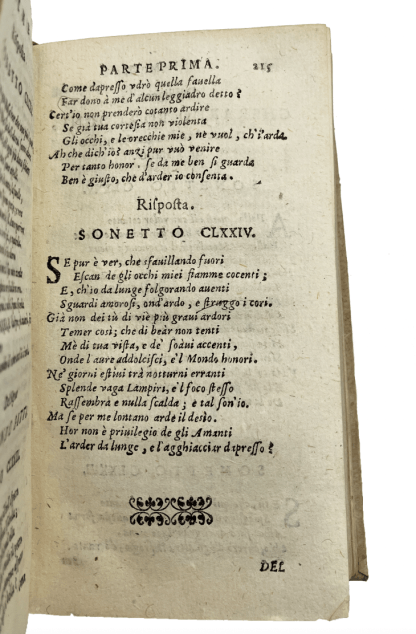 PARTE PRIMA. 215
Come dapresso vdrò quella fauella
Far dono à me d'alcun leggiadro detto?
Cert'io non prenderò cotanto ardire
Se già tua cortesia non violenta
Gli occhi, e le orecchie mie, nè vuol, ch'i'arda.
Ah che dich'io? anzi pur vuò venire
Per tanto honor. se da me ben si guarda
Ben è giusto, che d'arder io consenta.
Risposta.
SONETTO CLXXIV.
SE pur è ver, che sfauillando fuori
Escan de gli occhi miei fiamme cocenti;
E, ch'io da lunge folgorando auenti
Sguardi amorosi, ond'ardo, e struggo i cori.
Già non dei tù di vie più graui ardori
Temer così; che di bear non tenti
Mè di tua vista, e de' soaui accenti,
Onde l'aure addolcisci, e'l Mondo honori.
Ne' giorni estiui trà notturni erranti
Splende vaga Lampiri, e'l foco stesso
Rassembra e nulla scalda; e tal son'io.
Ma se per me lontano arde il desio.
Hor non è priuilegio de gli Amanti
L'arder da lunge, e l'agghiacciar dapresso?
DEL